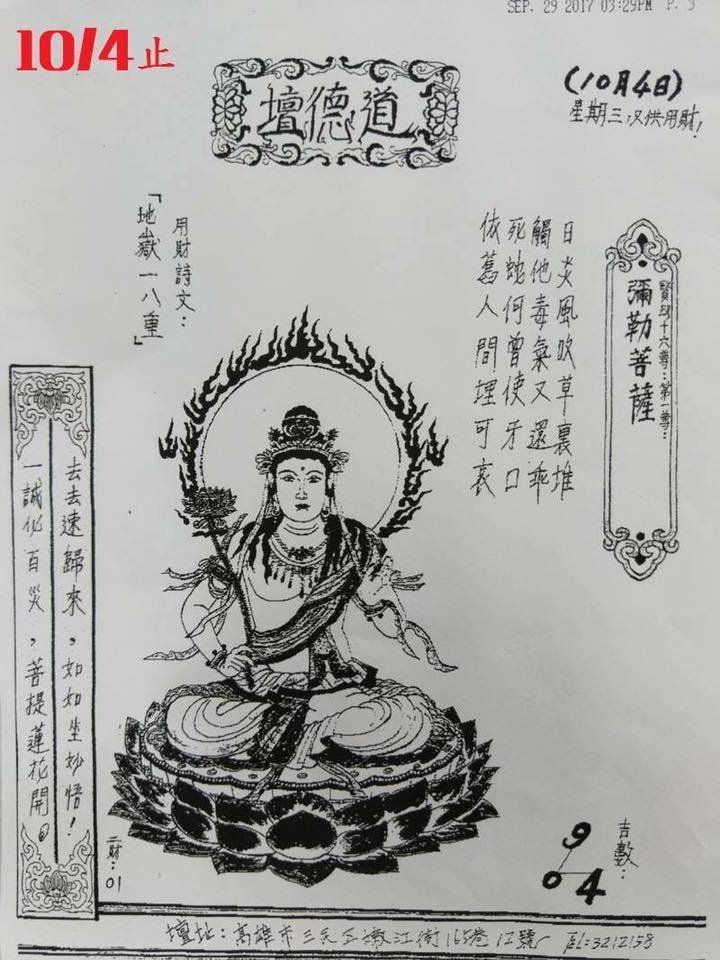 SEP. 29 2017 03:29PM P. 3
10/4止
道德壇
(10月4日)
星期三仅供用財!
賢劫十六尊:第一尊:
彌勒菩薩
日炎風吹草裏堆
觸他毒氣又還乖
死蛇何曾使牙口
依舊人間埋可哀
用財詩文:
「地嶽一八重」
去去速歸來,如如坐妙悟!
一誠化百災,菩提蓮花開。
二財:01
吉數:
9
0 4
壇址:高雄市三民區嫩江街165巷12號 TEL:3212158